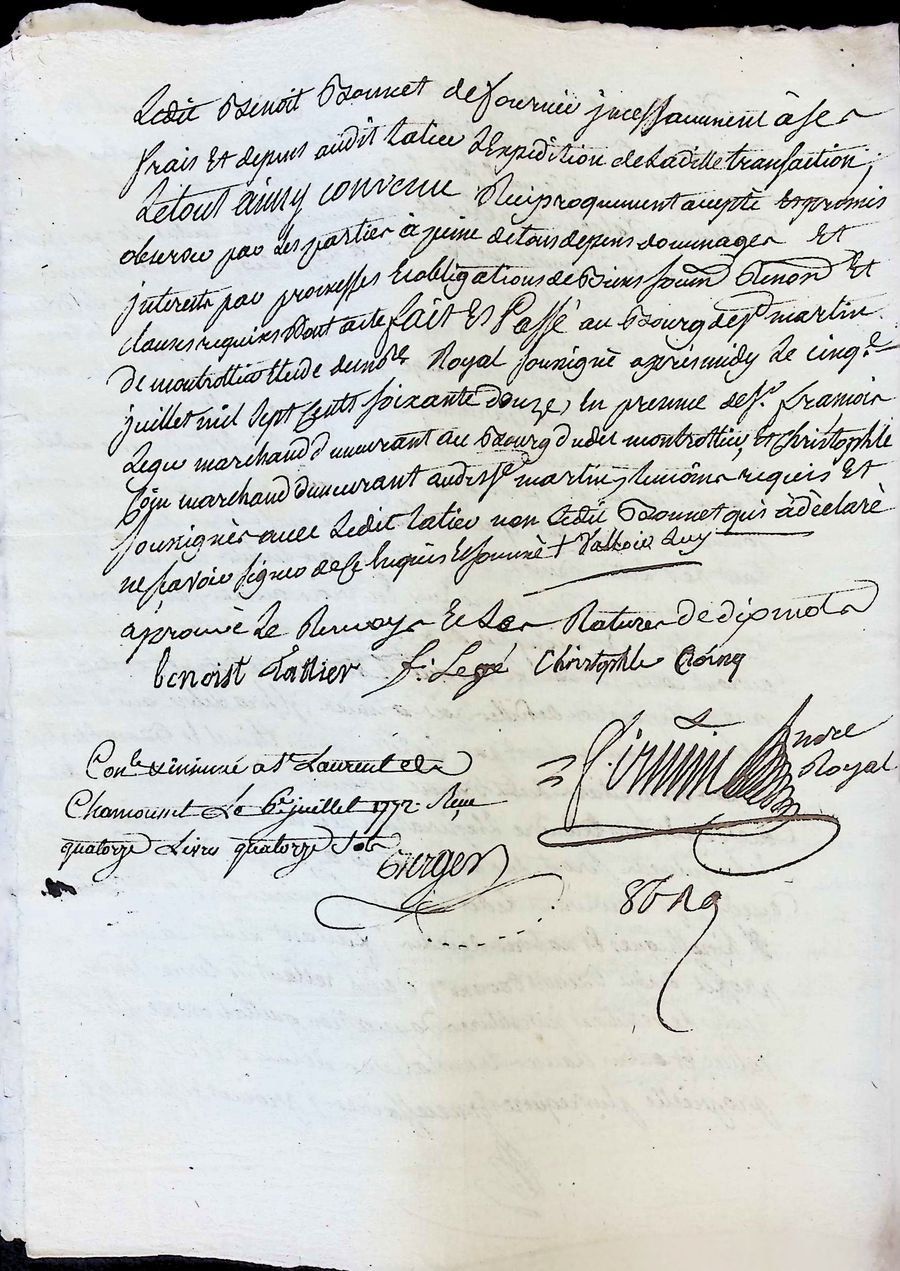 Ledit Benoit Bonnet de fournir jncessamment à ses
frais Et depens audit Latier L'Expedition deladitte transaction,
Letout ainsy convenu Reciproquement accepté Et promis
observer par Les parties à peine detous depens dommages Et
jnterests par promesses Et obligations de Biens soum.on Renon.on Et
clauses requises Dont acte fait Et Passé au Bourg de s.t martin
De montrottier Etude dunore Royal soussigné apres midy Le cinq.e
juillet mil sept Cents soixante douze, En presence de s.r francois
Legé marchand demeurant au Bourg dudit montrottier, Et Christophle
marchand demeurant audit s.t martin, temoins requis Et
soussignés avec Ledit Latier non Ledit Bonnet qui a dèclaré
ne savoir signer de ce Enquis Et sommé +
àprouvé Le Renvoy Et Les Ratures De dix mots
benoist Lattier f. Legé Christophle
nore
Royal
Con.lé Et insinué a St Laurent de
Chamousset Le 6.e juillet 1772. Reçu
quatorze Livres quatorze sols